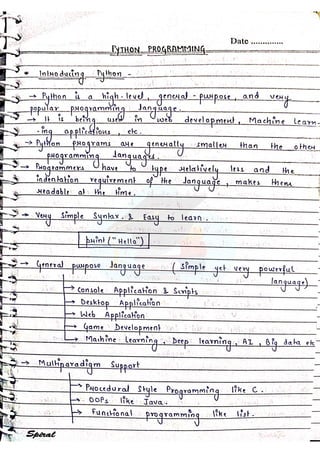 Date ..............
PYTHON PROGRAMMING
• Introducing Python -
→ Python is a high-level, general-purpose, and very
popular programming language.
→ It is being used in web development, Machine Learn-
-ing applications, etc.
→ Python programs are generally smaller than the other
programming languages.
→ Programmers have to type relatively less and the
indentation requirement of the language, makes them
readable all the time.
→ Very Simple Syntax & Easy to learn.
print ("Hello")
→ General purpose language (Simple yet very powerful
language)
→ Console Application & Scripts
→ Desktop Application
→ Web Application
→ Game Development
→ Machine Learning, Deep learning, AI, Big data etc
→ Multiparadigm Support
→ Procedural Style Programming like C.
→ OOPs like Java.
→ Functional programming like list.
Spiral